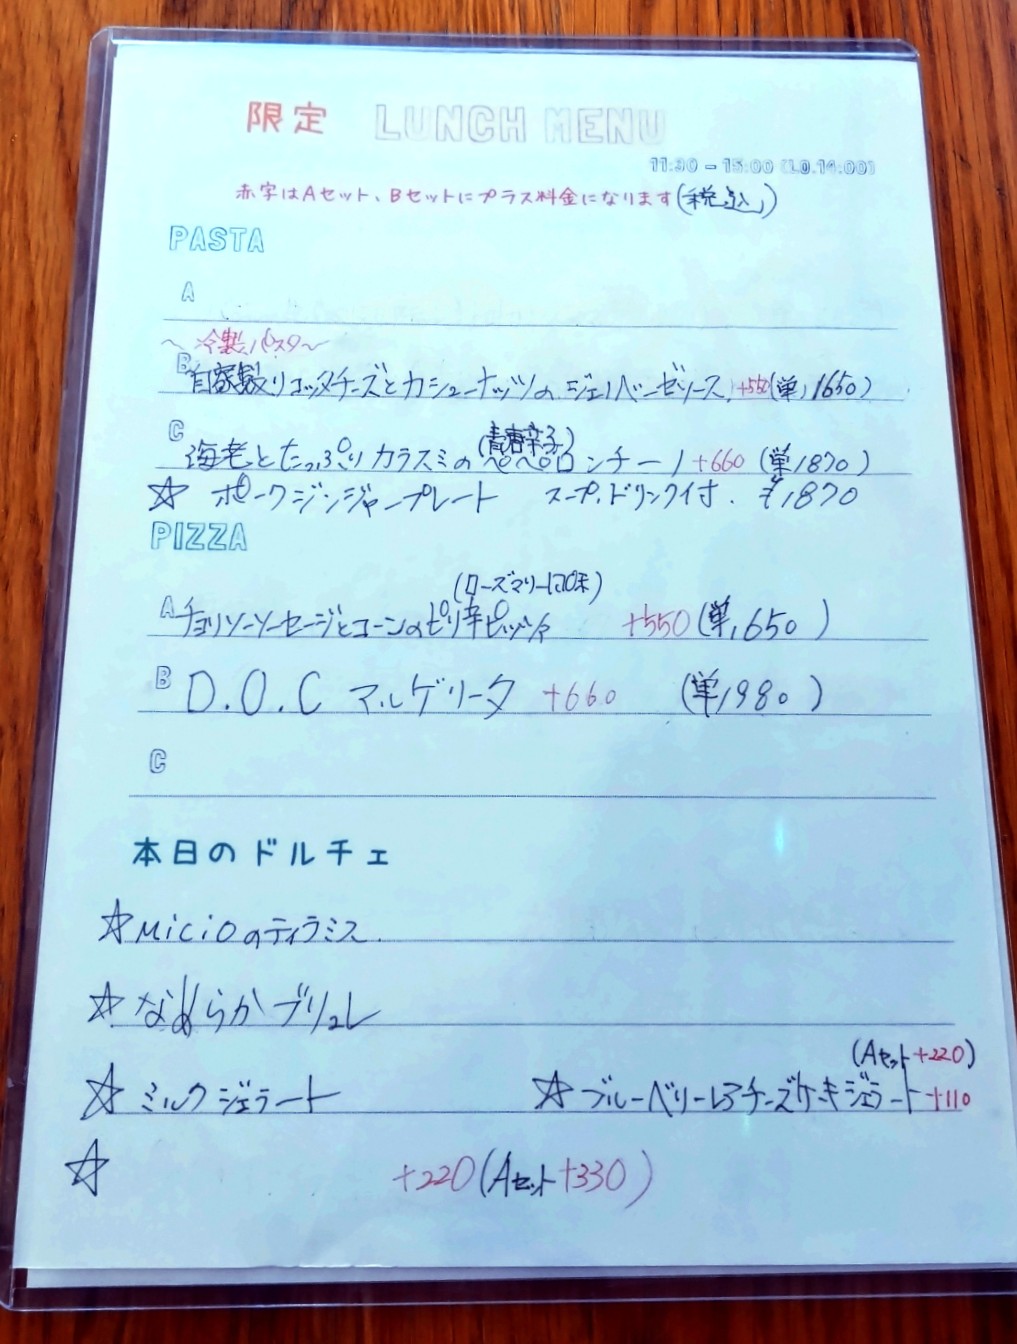 限定 LUNCH MENU
11:30 - 15:00 (L.O.14:00)
赤字はAセット、Bセットにプラス料金になります(税込)
PASTA
A
〜冷製パスタ〜
B 自家製リコッタチーズとカシューナッツのジェノベーゼソース +550(単,1650)
(青唐辛子)
C 海老とたっぷりカラスミのペペロンチーノ +660 (単1870)
☆ ポークジンジャープレート スープ.ドリンク付. ¥1870
PIZZA
(ローズマリー風味)
A チョリソーソーセージとコーンのピリ辛ピッツァ +550 (単,1650)
B D.O.C マルゲリータ +660 (単1980)
C
本日のドルチェ
☆Micioのティラミス
☆なめらかブリュレ
(Aセット+220)
☆ミルクジェラート ☆ブルーベリーレアチーズケーキジェラート+110
☆ +220(Aセット+330)